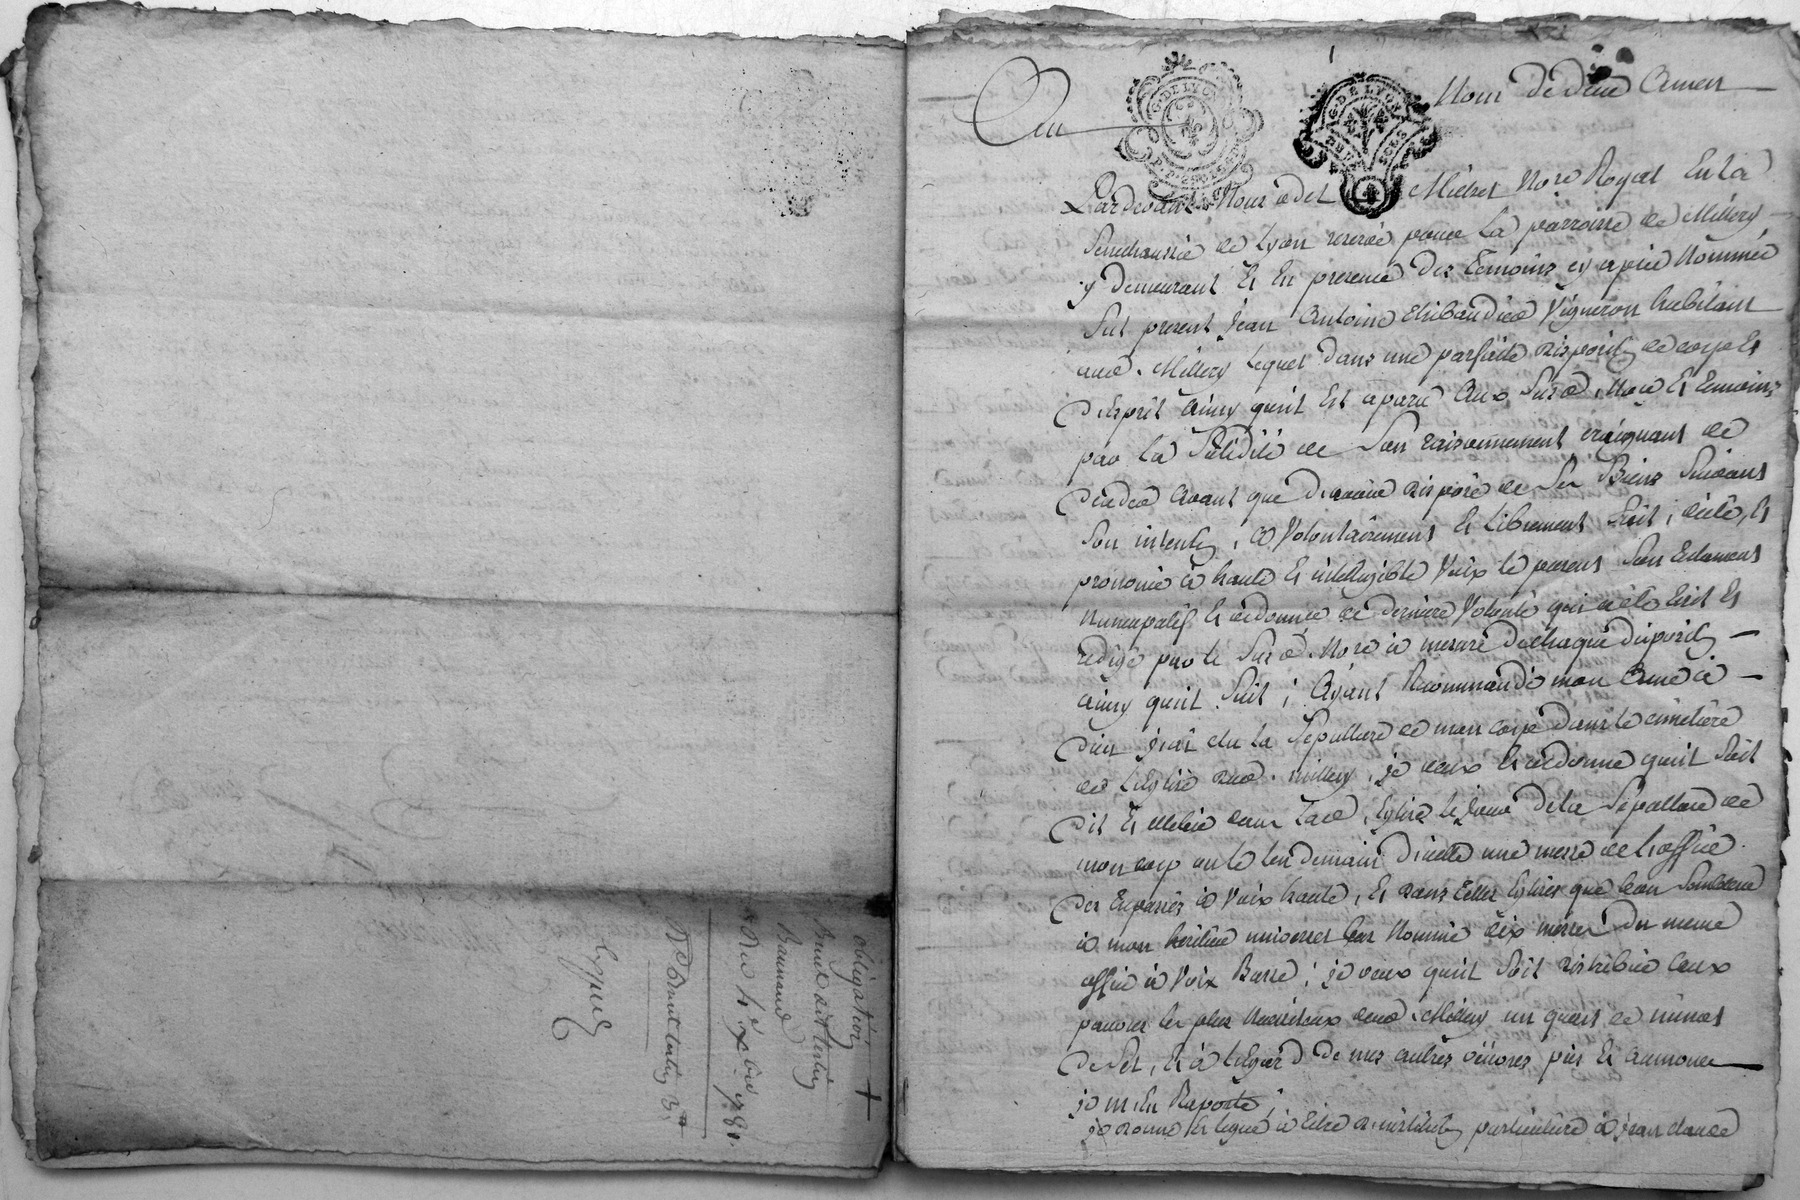 obligation
Brunet dit tertin
Barmand
Du 4e xbre 1781
Expié
Au Nom de dieu Amen
G. DE LYON
G. DE LYON
Pardevant Nous
Miéret Nore Royal En la
Senechaussée de Lyon reservé pour La parroisse de Millery
y demeurant Et En presence des Temoins cy après Nommée
fut present Jean Antoine thibaudier Vigneron habitant
aud. Millery Lequel dans une parfaite dispositon de corps Et
d'Esprit ainsy quil Est aparu aux susd. Nore Et temoins
par la solidité de Son raisonnement craignant de
deceder avant que d'avoir disposé de Ses Biens suivant
Son intenton, a Volontairement Et Librement fait, dicté, Et
prononcé à haute Et intelligible Voix le present Son testament
Nuncupatif Et ordonnance de derniere Volonté qui a été Ecrit Et
redigé par le susd. Nore à mesure de chaque dispositon
ainsy quil suit; Ayant Recommandé mon Ame à
dieu j'ai élu la Sepulture de mon corps dans le cimetiere
de L'Eglise dud. millery, je veux Et ordonne quil soit
dit Et celebré dans lad. Eglise le jour de la Sepulture de
mon corps ou le lendemain d'icelle une messe de L'office
des trepassés à Voix haute, Et dans telles Eglises que bon Semblera
à mon héritier universel bas Nommé dix messes du meme
office à Voix Basse; je veux quil soit distribué aux
pauvres les plus Necessiteux dud. Millery un quart de minot
de Sel, Et à L'egard de mes autres œuvres pies Et aumones
je m'En Raporte;
je donne Et legue à titre d'institution particuliere à jean claude